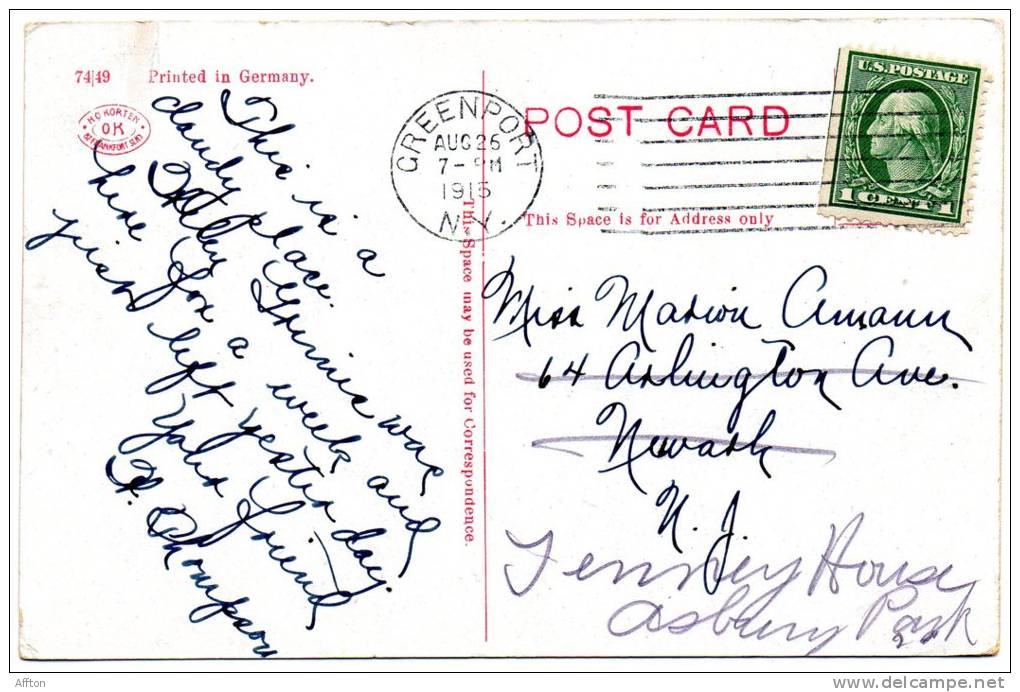 74|49 Printed in Germany.
H.O KORTEN
OK
FRANKFORT ST. NY
GREENPORT
AUG 26
7- PM
1915
N.Y.
POST CARD
U.S. POSTAGE
1 CENT 1
This Space is for Address only
This Space may be used for Correspondence.
This is a
dandy place.
was
here for a week and
just left yesterday.
Your friend,
H. Thompson
Miss Marion Amann
64 Arlington Ave.
Newark
N. J.
Tenney House
Asbury Park
Affton
delcampe.net